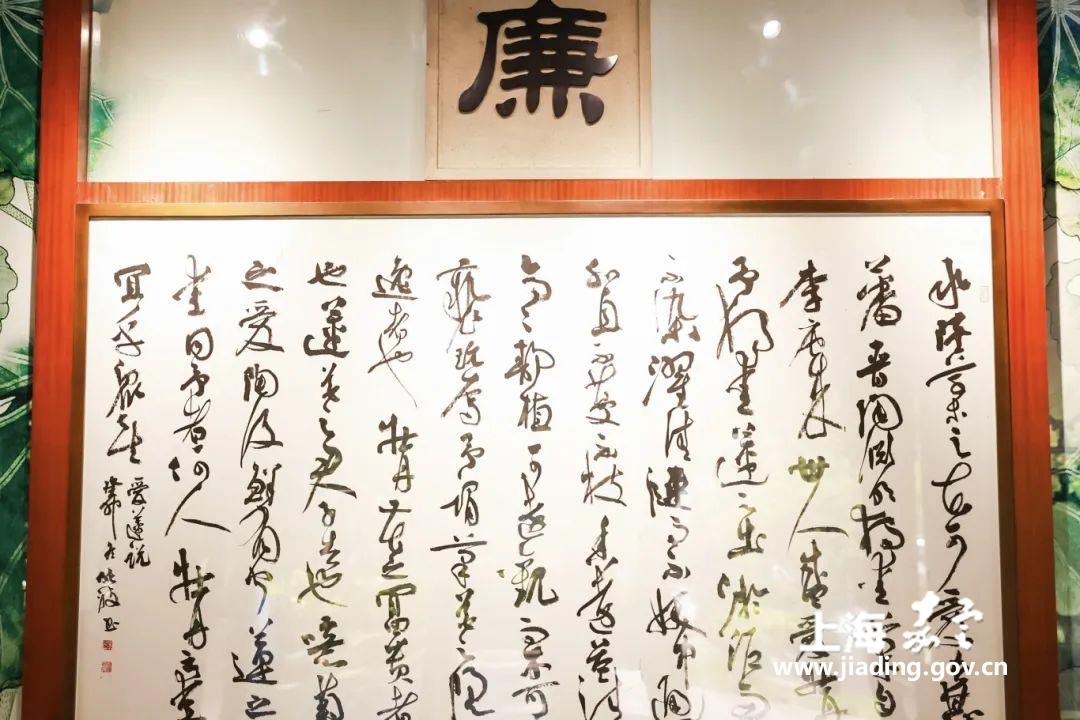 廉
水陸草木之花可愛者甚
蕃晋陶淵明獨愛菊自
李唐来世人盛愛牡丹
予獨愛蓮之出淤泥而
不染濯清漣而不妖中通
外直不蔓不枝香遠益清
亭亭静植可遠觀而不可
褻玩焉予謂菊花之隱
逸者也牡丹花之富貴者
也蓮花之君子者也噫菊
之愛陶後鮮有聞蓮之
愛同予者何人牡丹之愛
宜乎眾矣
愛蓮説
上海嘉定
www.jiading.gov.cn